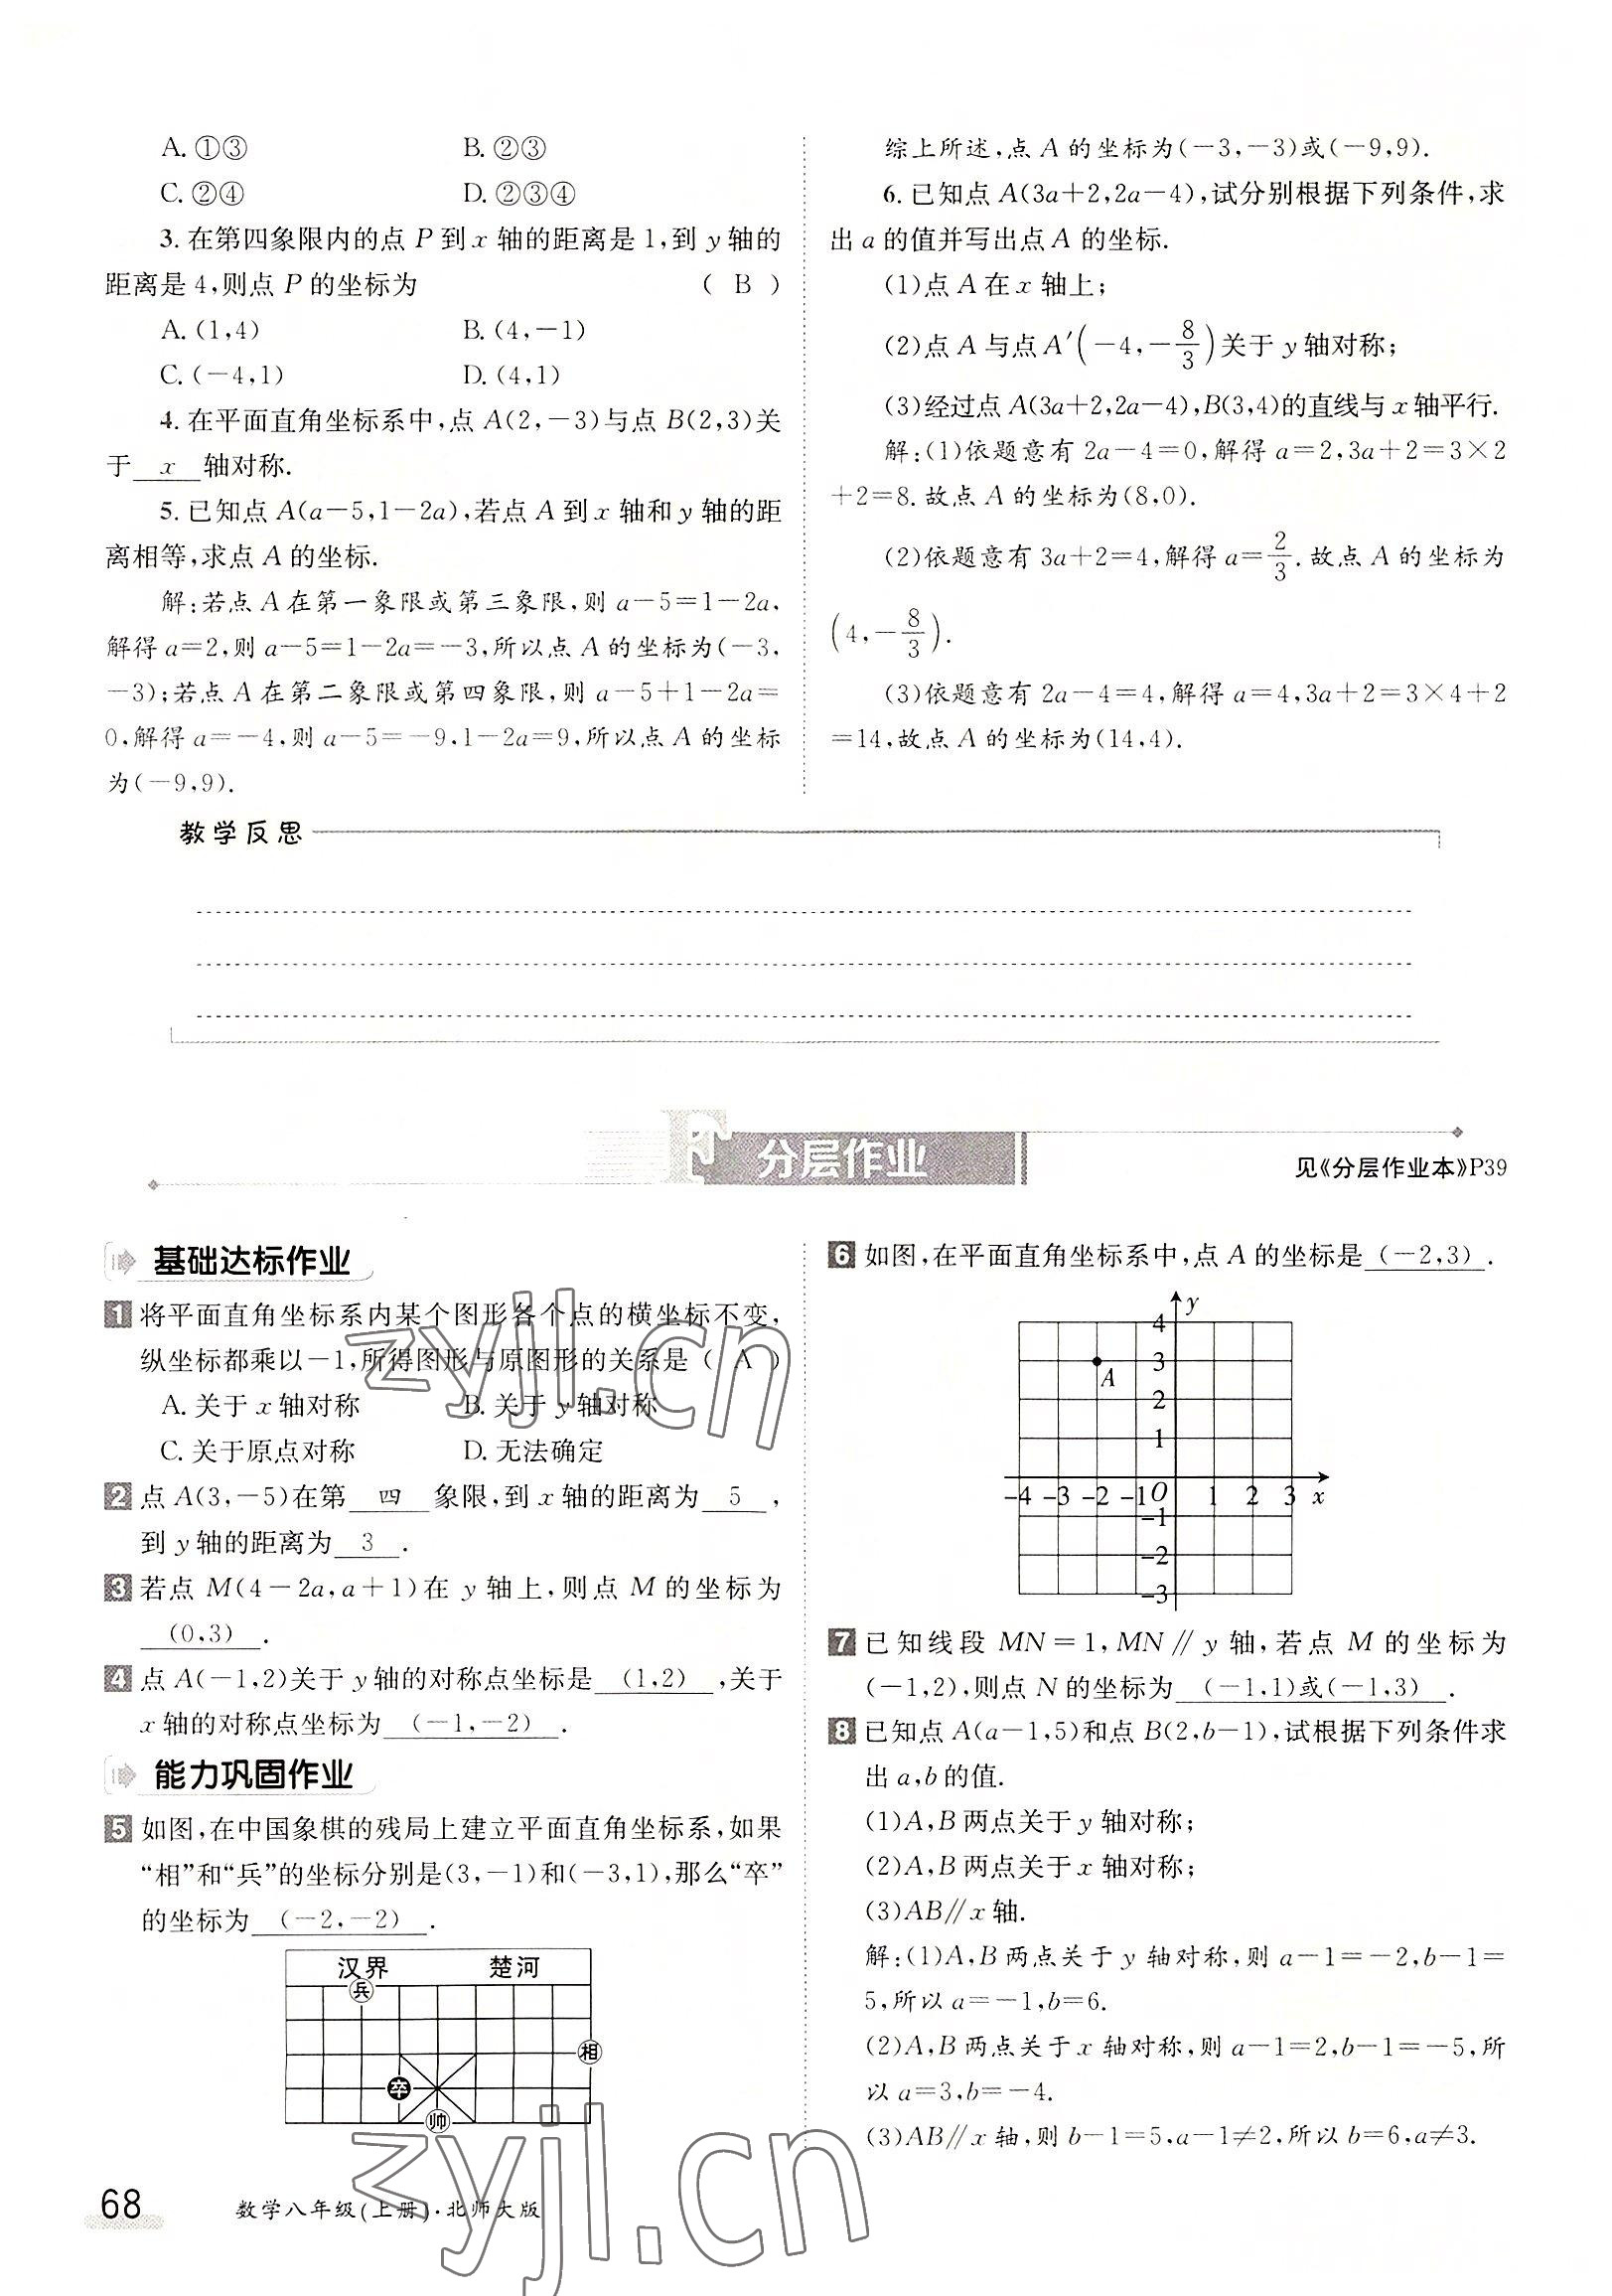 A. ①③ B. ②③
C. ②④ D. ②③④
3. 在第四象限内的点 P 到 x 轴的距离是 1,到 y 轴的
距离是 4,则点 P 的坐标为 ( B )
A. (1,4) B. (4,-1)
C. (-4,1) D. (4,1)
4. 在平面直角坐标系中,点 A(2,-3)与点 B(2,3)关
于 x 轴对称.
5. 已知点 A(a-5,1-2a),若点 A 到 x 轴和 y 轴的距
离相等,求点 A 的坐标.
解:若点 A 在第一象限或第三象限,则 a-5=1-2a,
解得 a=2,则 a-5=1-2a=-3,所以点 A 的坐标为(-3,
-3);若点 A 在第二象限或第四象限,则 a-5+1-2a=
0,解得 a=-4,则 a-5=-9,1-2a=9,所以点 A 的坐标
为(-9,9).
综上所述,点 A 的坐标为(-3,-3)或(-9,9).
6. 已知点 A(3a+2,2a-4),试分别根据下列条件,求
出 a 的值并写出点 A 的坐标.
(1)点 A 在 x 轴上;
(2)点 A 与点 A′(-4,-8/3)关于 y 轴对称;
(3)经过点 A(3a+2,2a-4),B(3,4)的直线与 x 轴平行.
解:(1)依题意有 2a-4=0,解得 a=2,3a+2=3×2
+2=8.故点 A 的坐标为(8,0).
(2)依题意有 3a+2=4,解得 a=2/3.故点 A 的坐标为
(4,-8/3).
(3)依题意有 2a-4=4,解得 a=4,3a+2=3×4+2
=14,故点 A 的坐标为(14,4).
教学反思
分层作业
见《分层作业本》P39
基础达标作业
1 将平面直角坐标系内某个图形各个点的横坐标不变,
纵坐标都乘以-1,所得图形与原图形的关系是( A )
A. 关于 x 轴对称 B. 关于 y 轴对称
C. 关于原点对称 D. 无法确定
2 点 A(3,-5)在第 四 象限,到 x 轴的距离为 5 ,
到 y 轴的距离为 3 .
3 若点 M(4-2a,a+1)在 y 轴上,则点 M 的坐标为
(0,3) .
4 点 A(-1,2)关于 y 轴的对称点坐标是 (1,2) ,关于
x 轴的对称点坐标为 (-1,-2) .
能力巩固作业
5 如图,在中国象棋的残局上建立平面直角坐标系,如果
“相”和“兵”的坐标分别是(3,-1)和(-3,1),那么“卒”
的坐标为 (-2,-2) .
汉界 楚河
兵
相
卒
帅
6 如图,在平面直角坐标系中,点 A 的坐标是 (-2,3) .
y
4
3
A
2
1
-4 -3 -2 -1 O 1 2 3 x
-1
-2
-3
7 已知线段 MN=1,MN∥y 轴,若点 M 的坐标为
(-1,2),则点 N 的坐标为 (-1,1)或(-1,3) .
8 已知点 A(a-1,5)和点 B(2,b-1),试根据下列条件求
出 a,b 的值.
(1)A,B 两点关于 y 轴对称;
(2)A,B 两点关于 x 轴对称;
(3)AB∥x 轴.
解:(1)A,B 两点关于 y 轴对称,则 a-1=-2,b-1=
5,所以 a=-1,b=6.
(2)A,B 两点关于 x 轴对称,则 a-1=2,b-1=-5,所
以 a=3,b=-4.
(3)AB∥x 轴,则 b-1=5,a-1≠2,所以 b=6,a≠3.
zyjl.cn
zyjl.cn
68
数学八年级(上册)·北师大版